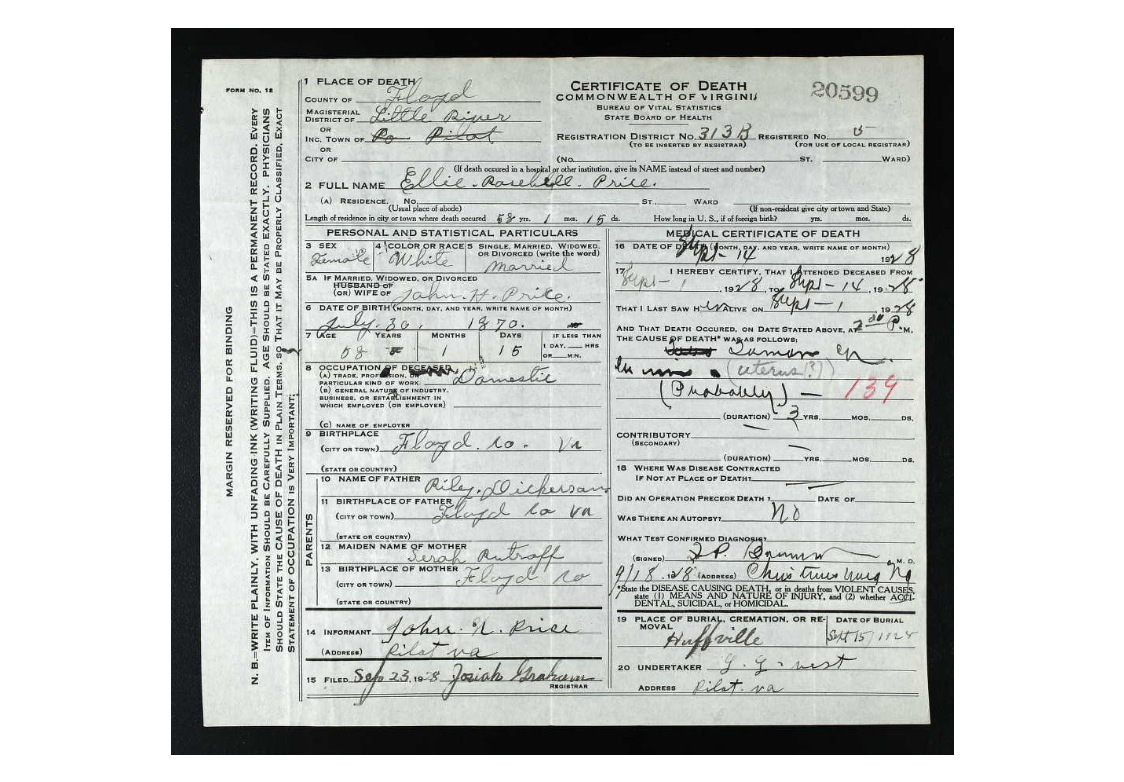 FORM NO. 12
MARGIN RESERVED FOR BINDING
N. B.—WRITE PLAINLY, WITH UNFADING INK (WRITING FLUID)—THIS IS A PERMANENT RECORD. EVERY
ITEM OF INFORMATION SHOULD BE CAREFULLY SUPPLIED. AGE SHOULD BE STATED EXACTLY. PHYSICIANS
SHOULD STATE THE CAUSE OF DEATH IN PLAIN TERMS, SO THAT IT MAY BE PROPERLY CLASSIFIED. EXACT
STATEMENT OF OCCUPATION IS VERY IMPORTANT.
1 PLACE OF DEATH
COUNTY OF Floyd
MAGISTERIAL
DISTRICT OF Little River
OR
INC. TOWN OF Po Pilot
OR
CITY OF
CERTIFICATE OF DEATH
COMMONWEALTH OF VIRGINIA
BUREAU OF VITAL STATISTICS
STATE BOARD OF HEALTH
20599
REGISTRATION DISTRICT NO. 313B REGISTERED NO.
(TO BE INSERTED BY REGISTRAR) (FOR USE OF LOCAL REGISTRAR)
(NO. ST. WARD)
(If death occured in a hospital or other institution, give its NAME instead of street and number)
2 FULL NAME Ellie Rosebell Price.
(A) RESIDENCE. NO. ST. WARD
(Usual place of abode) (If non-resident give city or town and State)
Length of residence in city or town where death occured 58 yrs. 1 mos. 15 ds. How long in U. S., if of foreign birth? yrs. mos. ds.
PERSONAL AND STATISTICAL PARTICULARS
3 SEX 4 COLOR OR RACE 5 SINGLE, MARRIED, WIDOWED, OR DIVORCED (write the word)
Female White Married
5A IF MARRIED, WIDOWED, OR DIVORCED
HUSBAND OF
(OR) WIFE OF John. H. Price.
6 DATE OF BIRTH (MONTH, DAY, AND YEAR, WRITE NAME OF MONTH)
July. 30, 1870.
7 AGE YEARS MONTHS DAYS IF LESS THAN
58 1 15 1 DAY, HRS
OR MIN.
8 OCCUPATION OF DECEASED
(A) TRADE, PROFESSION, OR
PARTICULAR KIND OF WORK Domestic
(B) GENERAL NATURE OF INDUSTRY,
BUSINESS, OR ESTABLISHMENT IN
WHICH EMPLOYED (OR EMPLOYER)
(C) NAME OF EMPLOYER
9 BIRTHPLACE
(CITY OR TOWN) Floyd co. Va
(STATE OR COUNTRY)
PARENTS
10 NAME OF FATHER Riley Dickerson
11 BIRTHPLACE OF FATHER
(CITY OR TOWN) Floyd Co Va
(STATE OR COUNTRY)
12 MAIDEN NAME OF MOTHER
Serah
13 BIRTHPLACE OF MOTHER
(CITY OR TOWN) Floyd Co
(STATE OR COUNTRY)
14 INFORMANT John. H. Price
(ADDRESS) Pilot va
15 FILED Sep 23, 1928 Josiah Graham
REGISTRAR
MEDICAL CERTIFICATE OF DEATH
16 DATE OF DEATH (MONTH, DAY, AND YEAR, WRITE NAME OF MONTH)
Sept- 14 1928
17 I HEREBY CERTIFY, THAT I ATTENDED DECEASED FROM
Sept- 1, 1928, TO Sept- 14, 1928
THAT I LAST SAW H ALIVE ON Sept- 1 1928
AND THAT DEATH OCCURED, ON DATE STATED ABOVE, AT 2 00 P. M.
THE CAUSE OF DEATH* WAS AS FOLLOWS:
(uterus?)
(Probably) — 139
(DURATION) 3 YRS. MOS. DS.
CONTRIBUTORY
(SECONDARY)
(DURATION) YRS. MOS. DS.
18 WHERE WAS DISEASE CONTRACTED
IF NOT AT PLACE OF DEATH?
DID AN OPERATION PRECEDE DEATH? DATE OF
WAS THERE AN AUTOPSY? No
WHAT TEST CONFIRMED DIAGNOSIS?
(SIGNED) M. D.
9/18, 1928 (ADDRESS)
*State the DISEASE CAUSING DEATH, or in deaths from VIOLENT CAUSES,
state (1) MEANS AND NATURE OF INJURY, and (2) whether ACCI-
DENTAL, SUICIDAL, or HOMICIDAL.
19 PLACE OF BURIAL, CREMATION, OR RE- DATE OF BURIAL
MOVAL
Huffville Sept 15, 1928
20 UNDERTAKER G. G. West
ADDRESS Pilot va